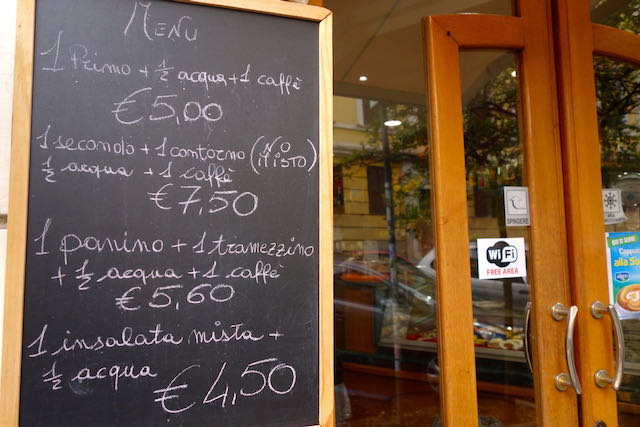 MENU
1 Primo + ½ acqua + 1 caffè
€5,00
1 secondo + 1 contorno (NO MISTO)
½ acqua + 1 caffè
€7,50
1 panino + 1 tramezzino
+ ½ acqua + 1 caffè
€5,60
1 insalata mista +
½ acqua
€4,50
SPINGERE
WiFi
FREE AREA
ARIA
Cappuc
alla So